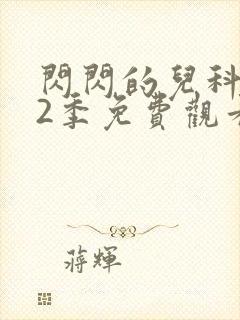 閃閃的兒科
2季免費觀
蔣輝